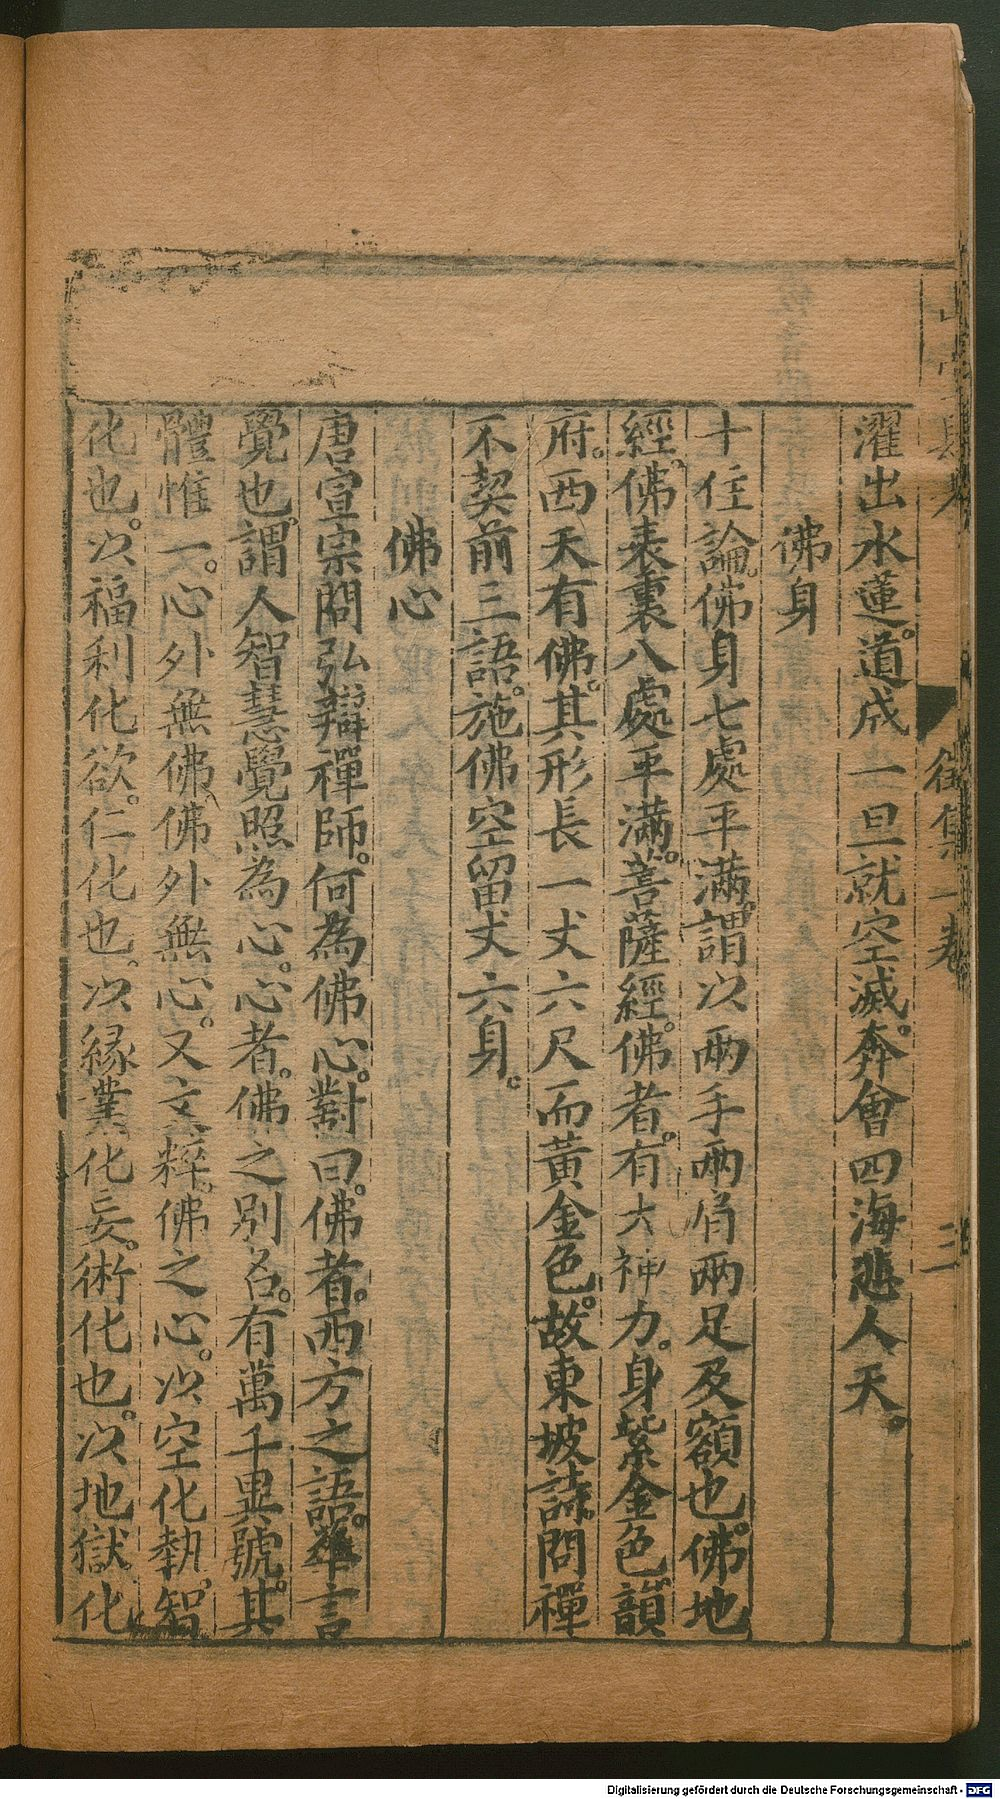 濯出水蓮。道成一旦就空滅。奔會四海悲人天。
佛身
十住論。佛身七處平滿。謂以兩手兩肩兩足及額也。佛地
經。佛表裏八處平滿。菩薩經。佛者。有大神力。身紫金色。韻
府。西天有佛。其形長一丈六尺而黃金色。故東坡詩。問禪
不契前三語。施佛空留丈六身。
佛心
唐宣宗問弘辯禪師。何為佛心。對曰。佛者。西方之語。華言
覺也。謂人智慧覺照為心。心者。佛之別名。有萬千異號。其
體惟一。心外無佛。佛外無心。又文粹。佛之心。以空化執。智
化也。以福利化欲。仁化也。以緣業化妄。術化也。以地獄化
衜集一卷
三
Digitalisierung gefördert durch die Deutsche Forschungsgemeinschaft - DFG